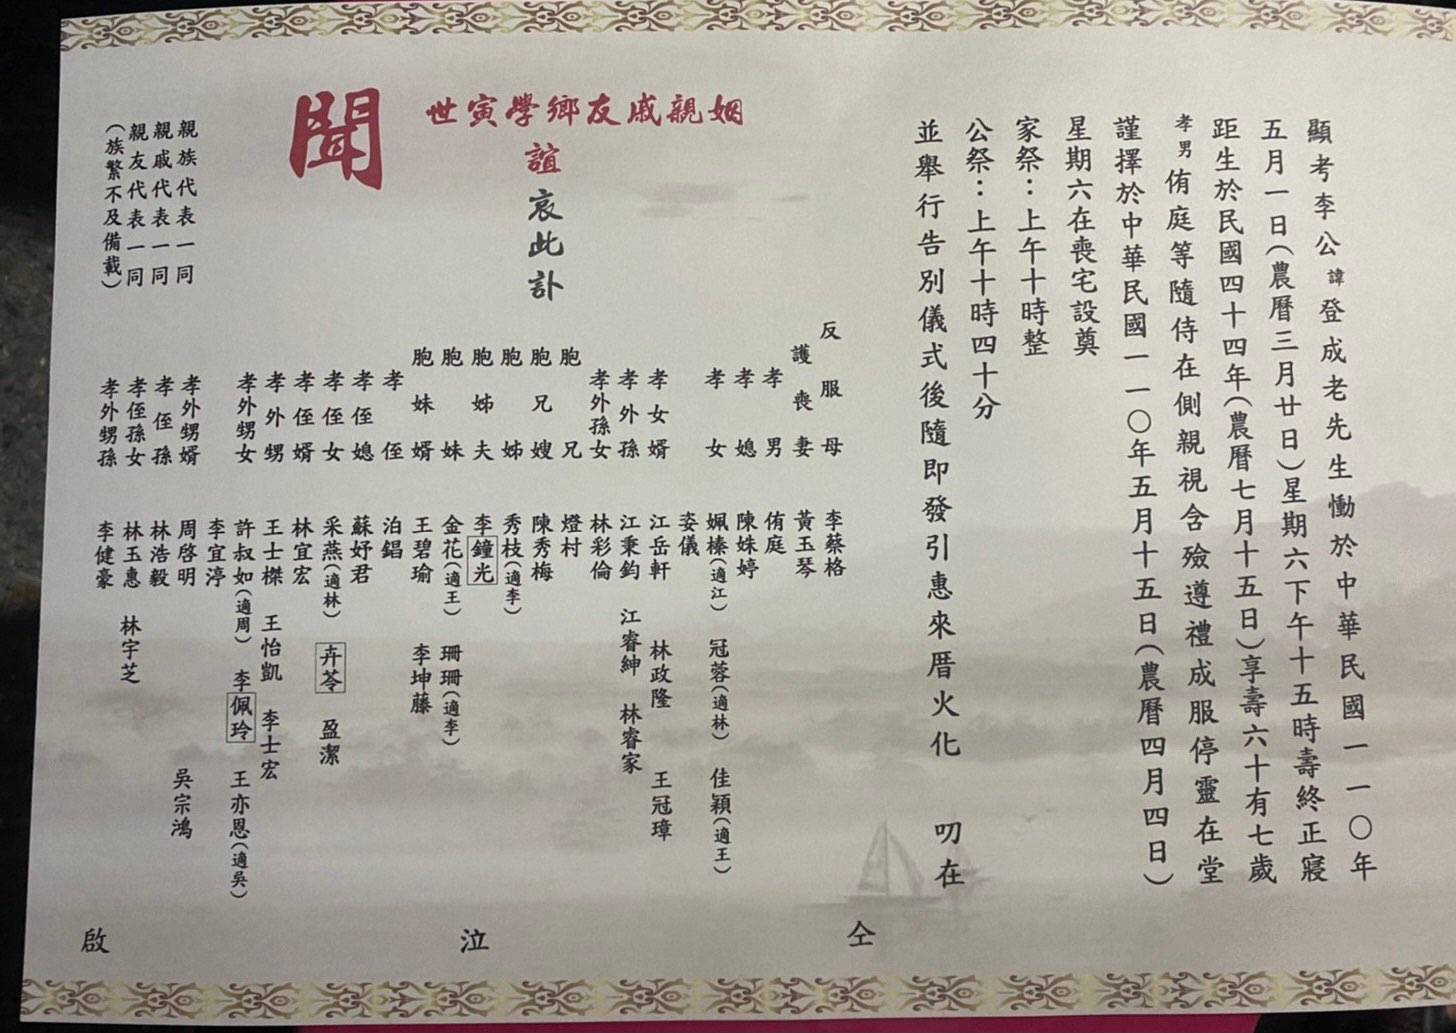 顯考李公諱登成老先生慟於中華民國一一〇年
五月一日(農曆三月廿日)星期六下午十五時壽終正寢
距生於民國四十四年(農曆七月十五日)享壽六十有七歲
孝男侑庭等隨侍在側親視含殮遵禮成服停靈在堂
謹擇於中華民國一一〇年五月十五日(農曆四月四日)
星期六在喪宅設奠
家祭：上午十時整
公祭：上午十時四十分
並舉行告別儀式後隨即發引惠來厝火化 叨在
姻親戚友鄉學寅世
誼哀此訃
聞
反服母 李蔡格
護喪妻 黃玉琴
孝男 侑庭
孝媳 陳姝婷
孝女 姵榛(適江) 冠蓉(適林) 佳穎(適王)
姿儀
孝女婿 江岳軒 林政隆 王冠璋
孝外孫 江秉鈞 江睿紳 林睿家
孝外孫女 林彩倫
胞兄 燈村
胞兄嫂 陳秀梅
胞姊 秀枝(適李)
胞姊夫 李鐘光
胞妹 金花(適王) 珊珊(適李)
胞妹婿 王碧瑜 李坤藤
孝侄 泊錩
孝侄媳 蘇妤君
孝侄女 采燕(適林) 卉苓 盈潔
孝侄婿 林宜宏
孝外甥 王士榤 王怡凱 李士宏
孝外甥女 許叔如(適周) 李佩玲 王亦恩(適吳)
李宜渟
孝外甥婿 周啓明 吳宗鴻
孝侄孫 林浩毅
孝侄孫女 林玉惠 林宇芝
孝外甥孫 李健豪
親族代表一同
親戚代表一同
親友代表一同
(族繁不及備載)
仝 泣 啟